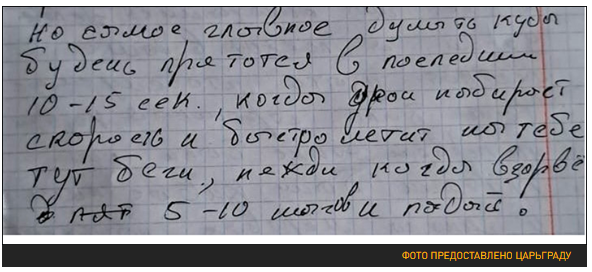 Но самое главное думать куда
будешь прятотся в последнии
10-15 сек., когда дрон набирает
скорость и быстро летит на тебе
тут беги, нежди когда взорвё
5-10 шагов и падай.
ФОТО ПРЕДОСТАВЛЕНО ЦАРЬГРАДУ